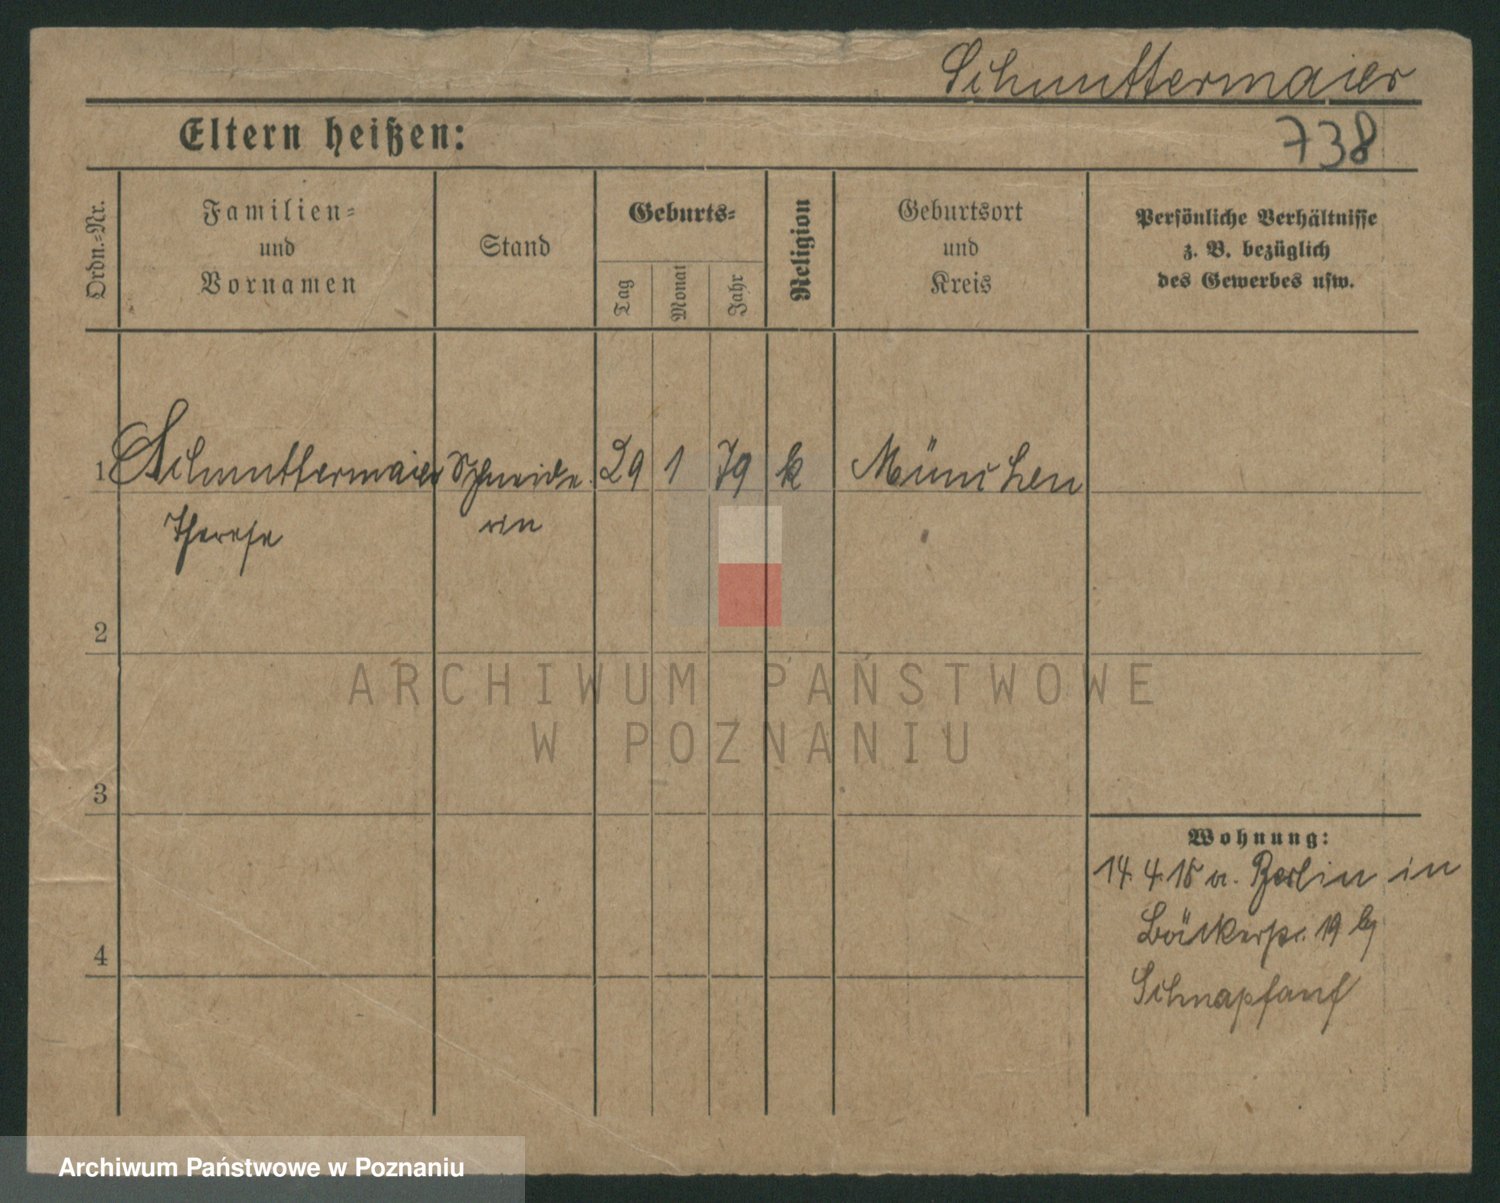 Schmuttermaier
Eltern heißen:
738
Ordn.-Nr.
Familien-
und
Vornamen
Stand
Geburts-
Tag
Monat
Jahr
Religion
Geburtsort
und
Kreis
Persönliche Verhältnisse
z. B. bezüglich
des Gewerbes usw.
1 Schmuttermaier Schneide- 29 1 79 k München
Therese rin
2
ARCHIWUM PAŃSTWOWE
W POZNANIU
3
Wohnung:
14. 4. 15 v. Berlin in
Bäckerstr. 19 bj
4
Archiwum Państwowe w Poznaniu